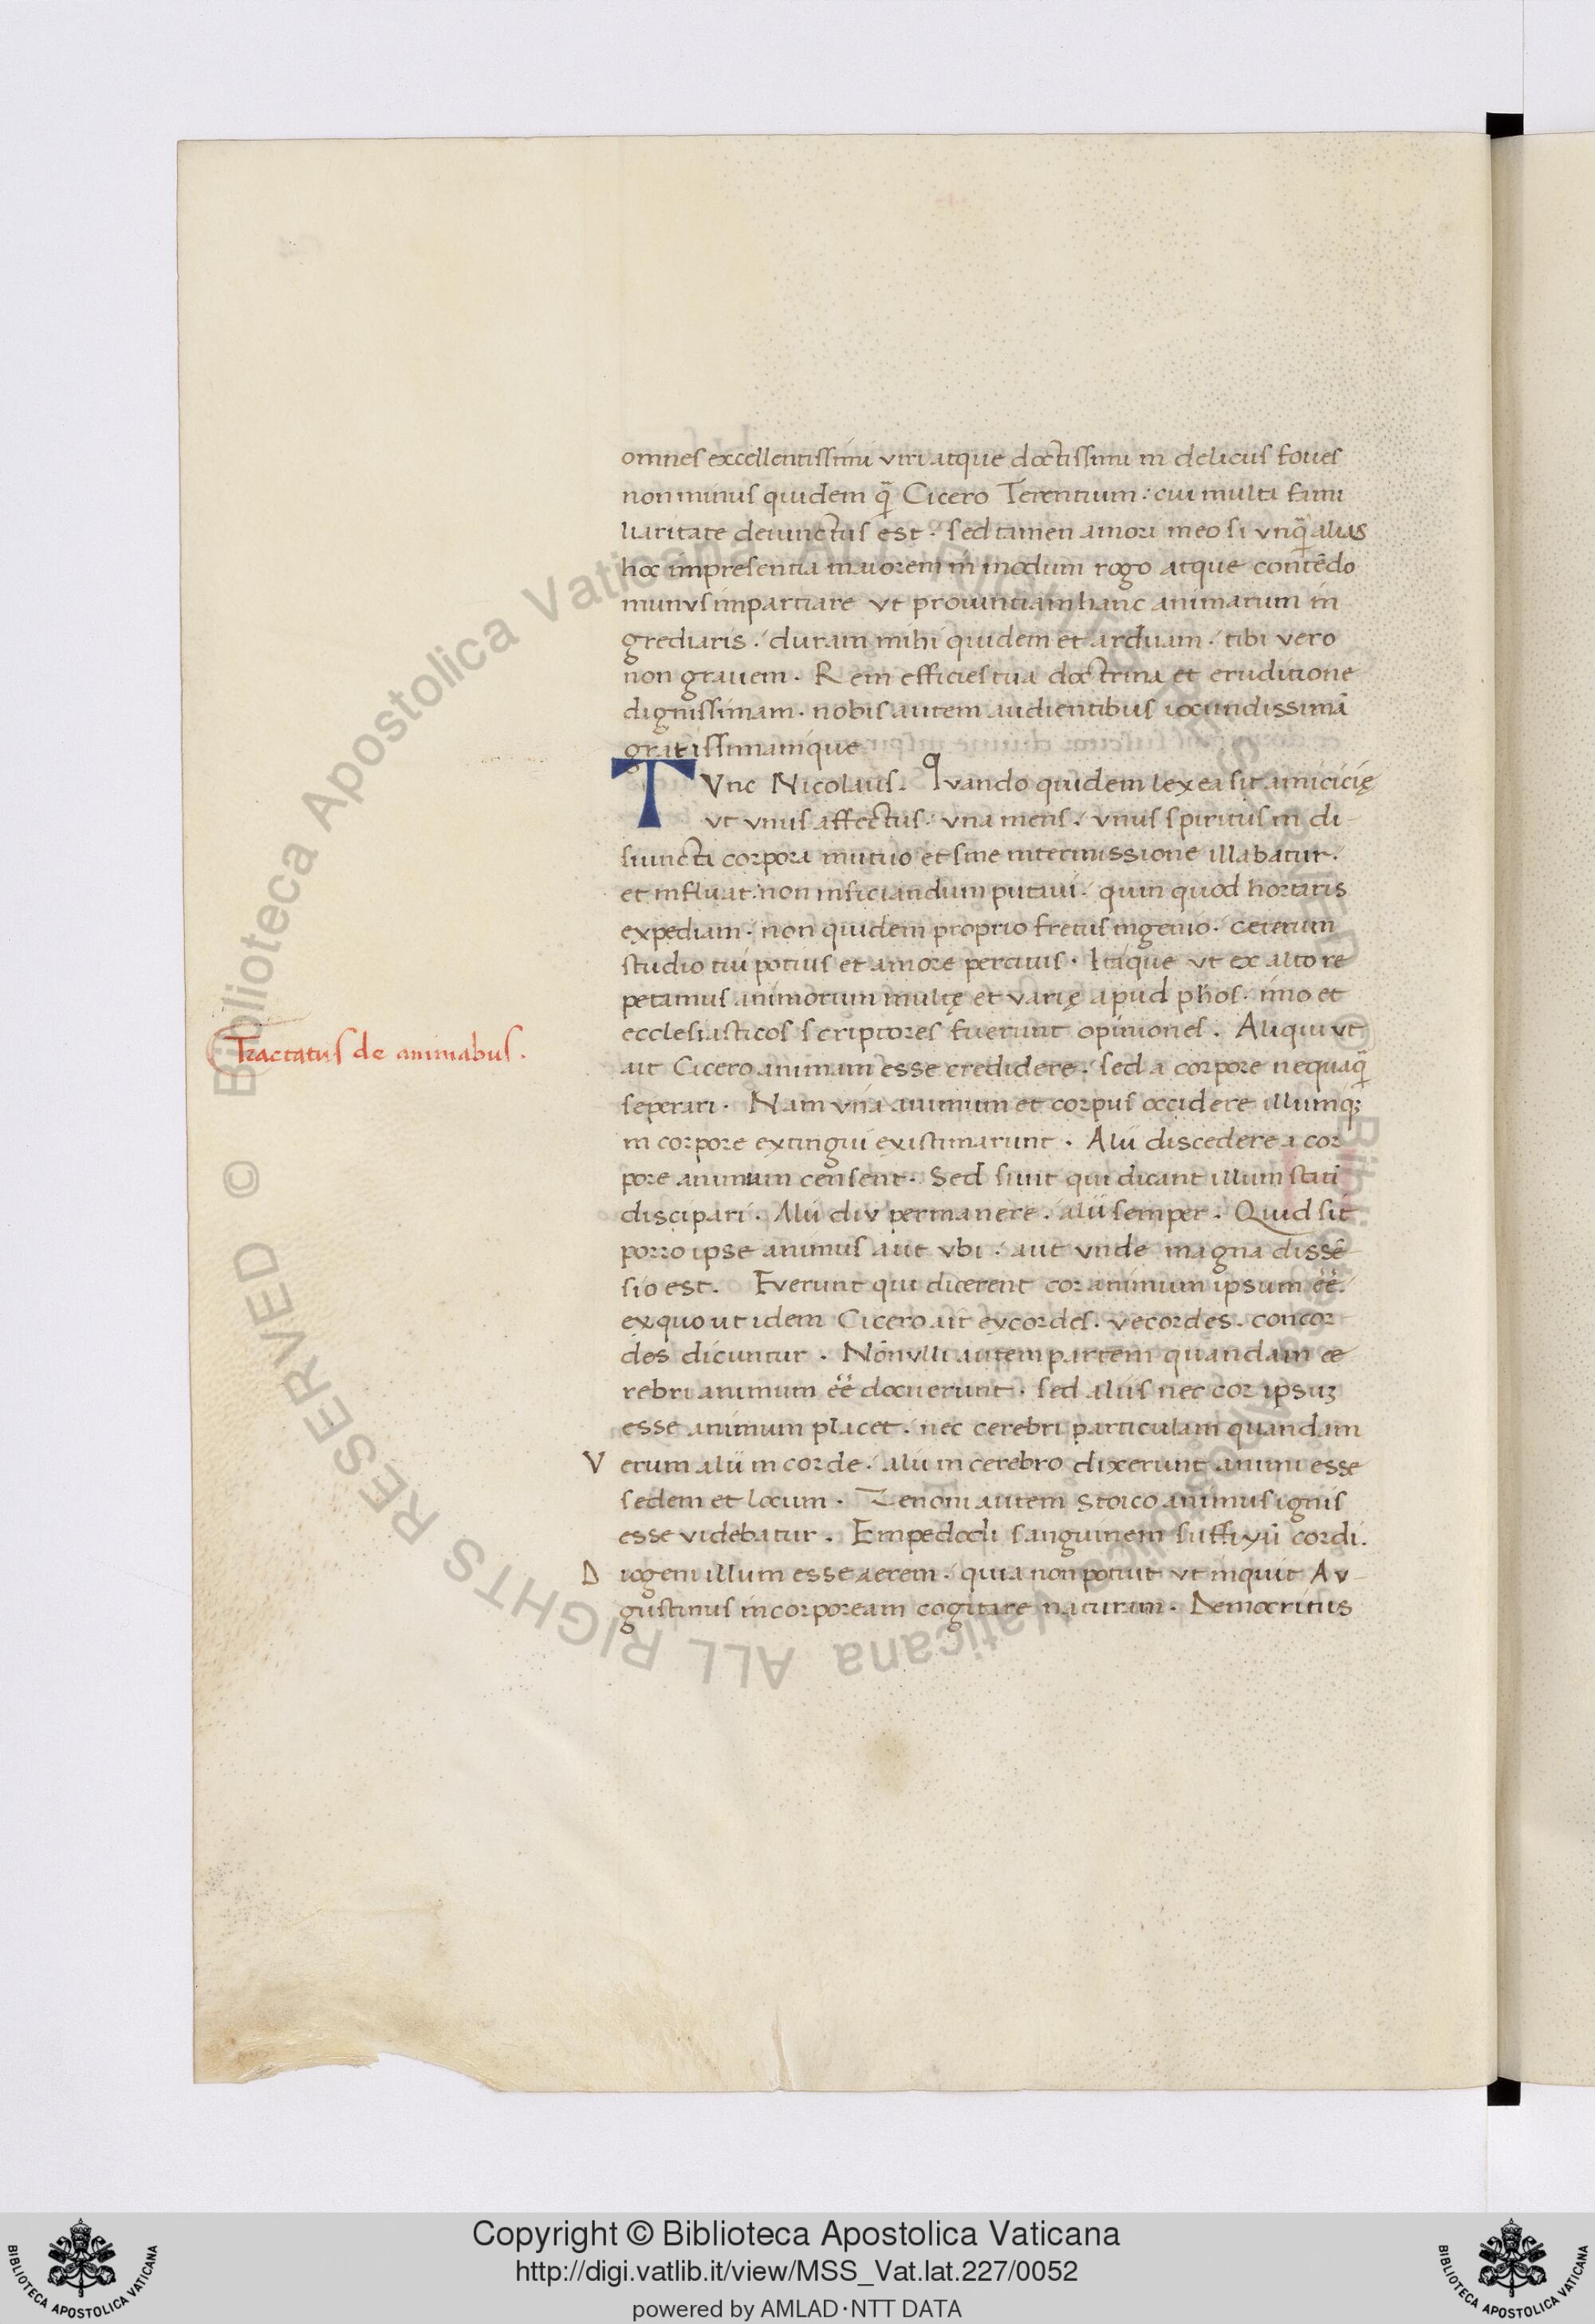 omnes excellentissimi viri atque doctissimi in deliciis foues
non minus quidem q̃ Cicero Terentium: cui multa fami
liaritate deiunctus est. sed tamen amori meo si vnq̃ alias
hoc impresentia maiorem in modum rogo atque contẽdo
munus impartiare vt prouintiam hanc animarum in
grediaris. duram mihi quidem et arduam. tibi vero
non grauem. Rem efficies tua doctrina et eruditione
dignissimam. nobis autem audientibus iocundissimã
gratissimamque
TVnc Nicolaus. Qvando quidem lex ea sit amicicię
vt vnus affectus. vna mens. vnus spiritus in di-
siuncta corpora mutuo et sine intermissione illabatur.
et influat: non inficiandum putaui. quin quod hortaris
expediam. non quidem proprio fretus ingenio. ceterum
studio tui potius et amore percitus. Itaque vt ex alto re
petamus animorum multę et varię apud phõs. imo et
ecclesiasticos scriptores fuerunt opiniones. Aliqui vt
Tractatus de animabus.
ait Cicero animam esse credidere. sed a corpore nequaq̃
seperari. Nam vna animum et corpus occidere illumq;
in corpore extingui existimarunt. Alii discedere a cor
pore animum censent. Sed sunt qui dicant illum stati
discipari. Alii div permanere. alii semper. Quid sit
porro ipse animus aut vbi. aut vnde magna dissẽ
sio est. Fverunt qui dicerent cor animum ipsum ẽẽ.
ex quo ut idem Cicero ait excordes. vecordes. concor
des dicuntur. Nõnvlli autem partem quandam ce
rebri animum ẽẽ docuerunt. sed aliis nec cor ipsuʒ
esse animum placet. nec cerebri particulam quandam
Verum alii in corde. alii in cerebro dixerunt animi esse
sedem et locum. Zenoni autem stoico animus ignis
esse videbatur. Empedocli sanguinem suffixũ cordi.
Diogeni illum esse aerem. quia non potuit vt inquit Av-
gustinus incorpoream cogitare naturam. Democritus
© Biblioteca Apostolica Vaticana ALL RIGHTS RESERVED © Biblioteca Apostolica Vaticana ALL RIGHTS RESERVED
Copyright © Biblioteca Apostolica Vaticana
http://digi.vatlib.it/view/MSS_Vat.lat.227/0052
powered by AMLAD·NTT DATA
BIBLIOTECA APOSTOLICA VATICANA
BIBLIOTECA APOSTOLICA VATICANA